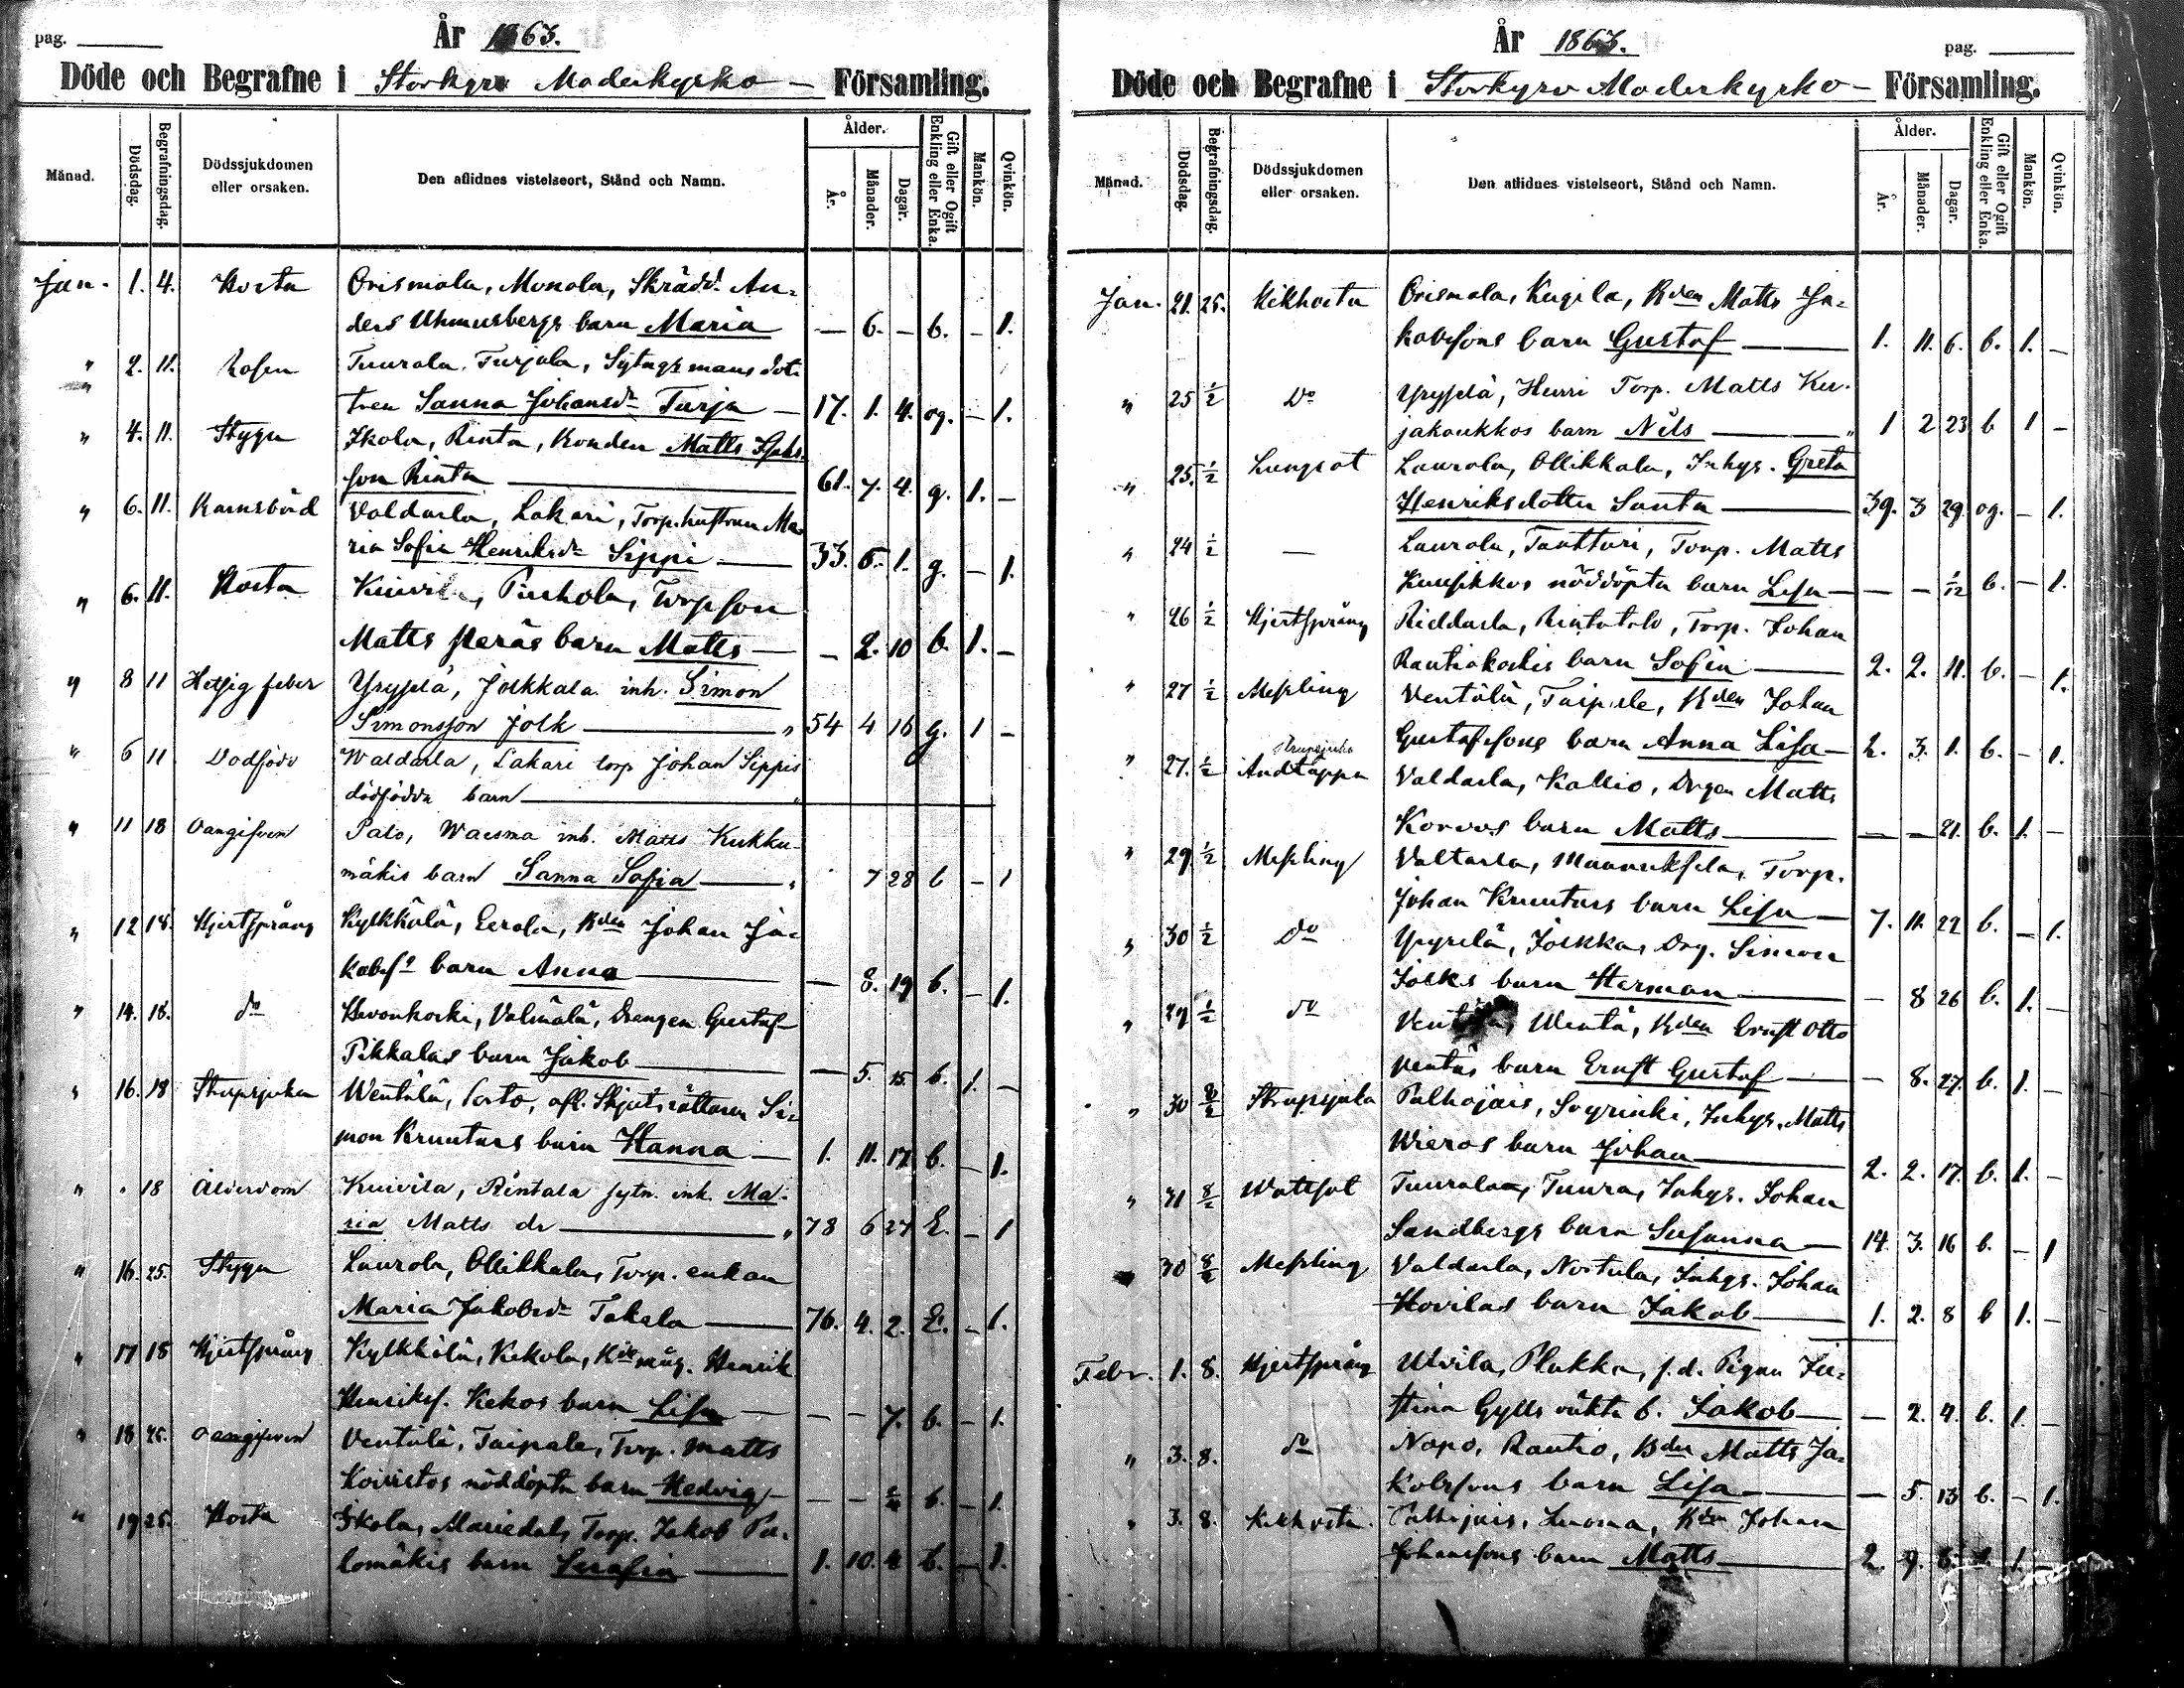 pag.
År 1863.
Döde och Begrafne i Storkyro Moderkyrko - Församling.
Månad. Dödsdag. Begrafningsdag. Dödssjukdomen eller orsaken. Den aflidnes vistelseort, Stånd och Namn. Ålder. År. Månader. Dagar. Gift eller Ogift Enkling eller Enka. Mankön. Qvinkön.
Jan. 1. 4. Hosta Orismala, Monola, Skrädd. An-
ders Uhmusbergs barn Maria — 6. — b. — 1.
" 2. 11. Rosen Tuurala, Turjala, Sytngsmans dot-
tren Sanna Johansdr Turja — 17. 1. 4. og. — 1.
" 4. 11. Stygn Ikola, Rinta, Bonden Matts Isaks-
son Rinta 61. 7. 4. g. 1. —
" 6. 11. Barnsbörd Valdarla, Lakari, Torp.hustrun Ma-
ria Sofia Henriksdr Sippi — 33. 5. 1. g. — 1.
" 6. 11. Hosta Kuivila, Pirhola, Torpson
Matts Peräs barn Matts — — 2. 10 b. 1. —
" 8 11 Hetsig feber Yryselä, Jolkkala inh. Simon
Simonsson Jolk — " 54 4 16 g. 1 —
" 6 11 Dödfödd Waldarla, Lakari torp Johan Sippis
dödfödda barn —
" 11 18 Oangifven Palo, Waisma inh. Matts Kukku-
mäkis barn Sanna Sofia — 7 28 b — 1
" 12 18. Hjertsprång Kylkkälä, Eerola, Bden Johan Ja-
kobss barn Anna — — 8. 19 b. — 1.
" 14. 18. do Hevonkoski, Välimälä, Drengen Gustaf
Pikkalas barn Jakob — — 5. 15. b. 1. —
" 16. 18 Strupsjukan Wentälä, Porto, afl. Skjutsrättaren Si-
mon Kruuturs barn Hanna — 1. 11. 17. b. — 1.
" " 18 Ålderdom Kuivila, Rintala sytn. ink. Ma-
ria Matts dr — " 78 6 27 E. — 1
" 16. 25. Stygn Laurola, Ollikkala, Torp. enkan
Maria Jakobsdr Takala — 76. 4. 2. E. — 1.
" 17 18 Hjertsprång Kylkkälä, Kekola, Bdemåg. Henrik
Henrikss. Kekos barn Lisa — — — 7. b. — 1.
" 18 25. Oangifven Ventälä, Taipale, Torp. Matts
Koivistos nöddöpta barn Hedvig — — — b. — 1.
" 19 25. Hosta Ikola, Mariedal, Torp. Jakob Pu-
lomäkis barn Serafia — 1. 10. 4 b. — 1.
År 1863.
pag.
Döde och Begrafne i Storkyro Moderkyrko - Församling.
Månad. Dödsdag. Begrafningsdag. Dödssjukdomen eller orsaken. Den aflidnes vistelseort, Stånd och Namn. Ålder. År. Månader. Dagar. Gift eller Ogift Enkling eller Enka. Mankön. Qvinkön.
Jan. 21. 25. Kikhosta Orismala, Kugila, Bden Matts Ja-
kobssons barn Gustaf — 1. 11. 6. b. 1. —
" 25 1/2 Do Yryselä, Hurri Torp. Matts Ku-
jakoukkos barn Nils — " 1 2 23 b 1 —
" 25. 1/2 Lungsot Laurola, Ollikkala, Inhys. Greta
Henriksdotter Santa — 39. 3 29. og. — 1.
" 24 1/2 — Laurola, Tanttari, Torp. Matts
Kuusikkos nöddöpta barn Lisa — — — 1/12 b. — 1.
" 26 1/2 Hjertsprång Riddarla, Rintatalo, Torp. Johan
Rantakoskis barn Sofia — 2. 2. 11. b. — 1.
" 27 1/2 Messling Ventälä, Taipale, Bden Johan
Gustafssons barn Anna Lisa — 2. 3. 1. b. — 1.
strupsjuka
" 27. 1/2 Andtäppa Valdarla, Kallio, Drgen Matts
Korvos barn Matts — — — 21. b. 1. —
" 29 1/2 Messling Valtarla, Maunuksela, Torp.
Johan Kruuturs barn Lisa — 7. 11. 22 b. — 1.
" 30 1/2 Do Yryselä, Jolkka, Drg. Simon
Jolks barn Herman — — 8 26 b. 1. —
" 29 1/2 do Ventälä, Wentä, Bden Ernst Otto
Ventäs barn Ernst Gustaf — — 8. 27. b. 1. —
" 30 8/2 Strupsjuka Palhojais, Soyrinki, Inhys. Matts
Wieros barn Johan — 2. 2. 17. b. 1. —
" 31 8/2 Wattsot Tuurala, Tuura, Inhys. Johan
Sandbergs barn Susanna — 14. 3. 16 b. — 1
" 30 8/2 Messling Valdarla, Nostula, Inhys. Johan
Hovilas barn Jakob — 1. 2. 8 b 1. —
Febr. 1. 8. Hjertsprång Ulvila, Plukka, f.d. Pigan Ju-
stina Gylls oäkta b. Jakob — — 2. 4. b. 1. —
" 3. 8. do Napo, Rautio, Bden Matts Ja-
kobssons barn Lisa — — 5. 13 b. — 1.
" 3. 8. Kikhosta. Palhojais, Luoma, Bden Johan
Johanssons barn Matts — 2. 9. 1. —